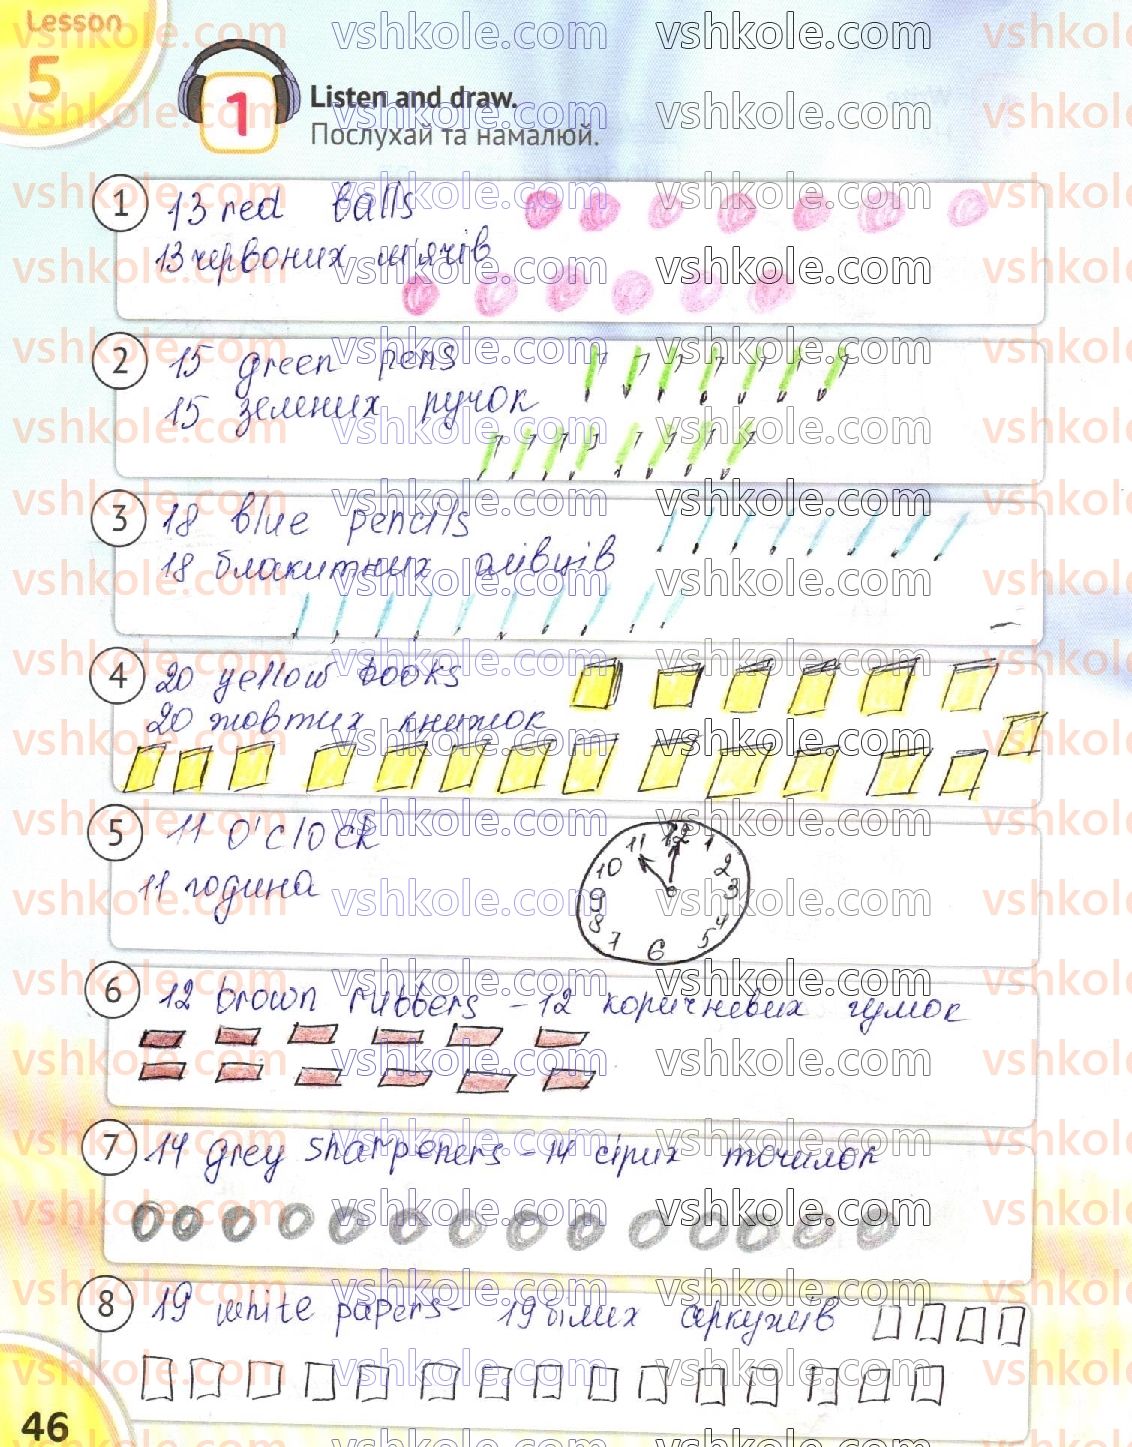 Lesson
5
1
Listen and draw.
Послухай та намалюй.
1
13 red balls
13 червоних м'ячів
2
15 green pens
15 зелених ручок
3
18 blue pencils
18 блакитних олівців
4
20 yellow books
20 жовтих книжок
5
11 o'clock
11 година
12
11 1
10 2
9 3
8 4
7 5
6
6
12 brown rubbers - 12 коричневих гумок
7
14 grey sharpeners - 14 сірих точилок
8
19 white papers - 19 білих
46
vshkole.com